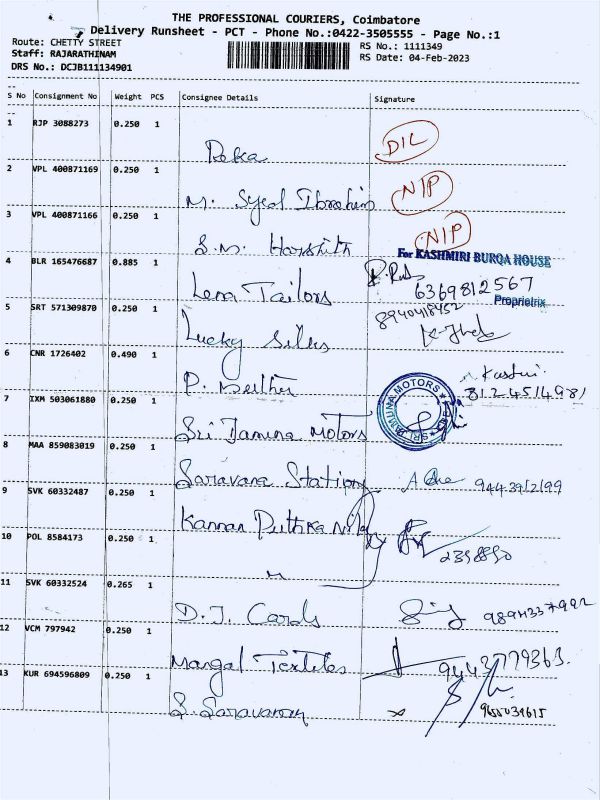 THE PROFESSIONAL COURIERS, Coimbatore
Delivery Runsheet - PCT - Phone No.:0422-3505555 - Page No.:1
Route: CHETTY STREET RS No.: 1111349
Staff: RAJARATHINAM RS Date: 04-Feb-2023
DRS No.: DCJB111134901
S No Consignment No Weight PCS Consignee Details Signature
1 RJP 3088273 0.250 1
Reka DIL
2 VPL 400871169 0.250 1
M. Syed Ibrahim N/P
3 VPL 400871166 0.250 1
S.M. Harshith N/P
4 BLR 165476687 0.885 1 For KASHMIRI BURQA HOUSE
Lena Tailors 6369812567
Proprietrix
5 SRT 571309870 0.250 1 8940418452
Lucky Silks
6 CNR 1726402 0.490 1
P. 8124514981
7 IXM 503061880 0.250 1 SRI JAMUNA MOTORS
Sri Jamuna Motors
8 MAA 859083019 0.250 1
Saravana Stationery
9 SVK 60332487 0.250 1
Kannan Puthaka
10 POL 8584173 0.250 1
11 SVK 60332524 0.265 1
D.J. Cards
12 VCM 797942 0.250 1
Mangal Textiles 9443779363.
13 KUR 694596809 0.250 1
S. Saravanan 9655034615